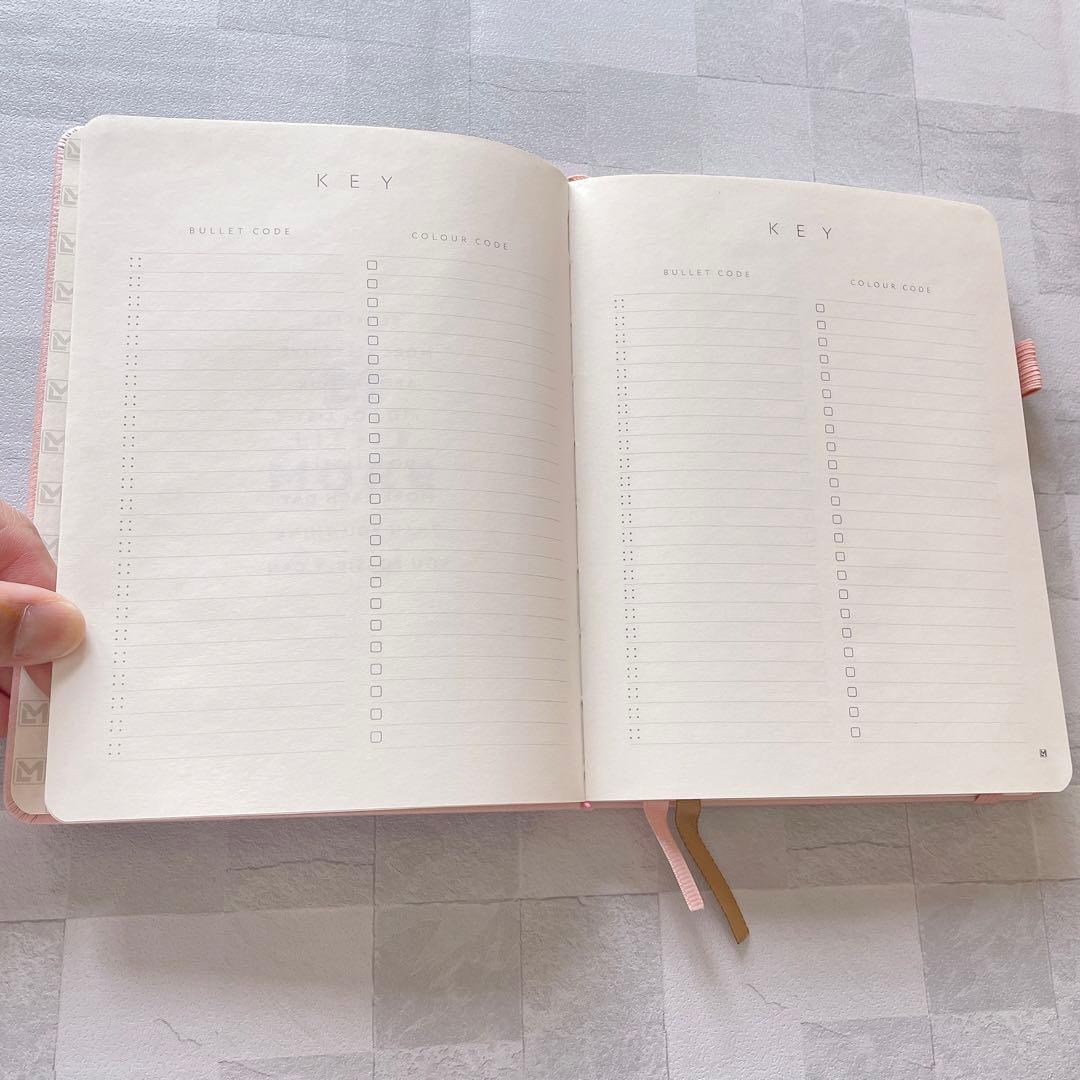 KEY
BULLET CODE
COLOUR CODE
KEY
BULLET CODE
COLOUR CODE